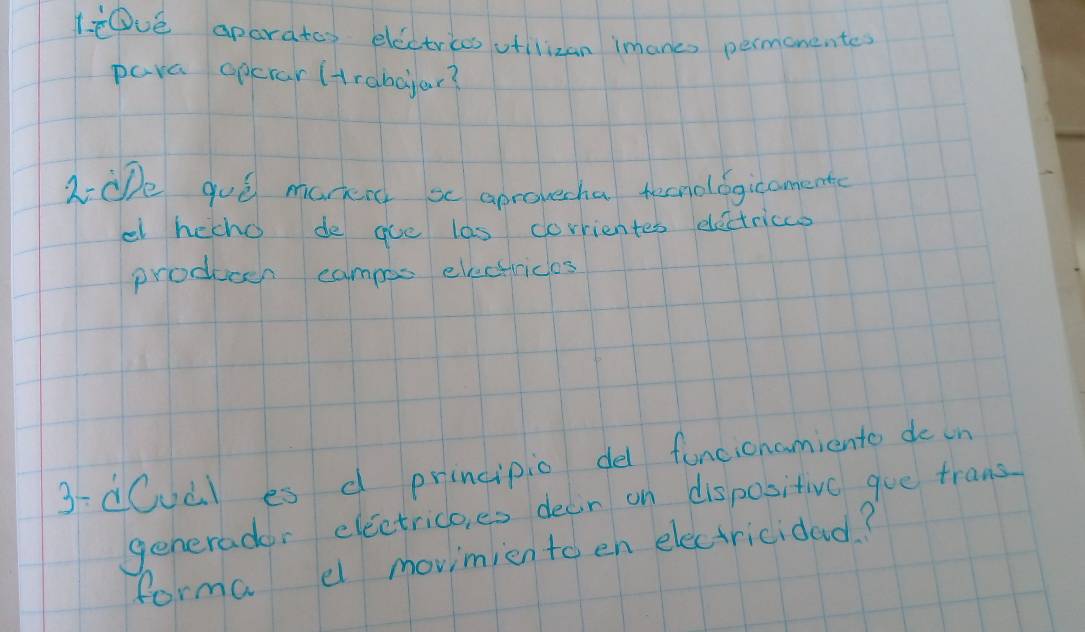 1-¿Qué aparatos eléctricos utilizan imanes permanentes
para operar (trabajar?
2-¿De qué manera se aprovecha tecnológicamente
el hecho de que las corrientes eléctricas
producen campos electricos
3-¿Cuál es el principio del funcionamiento de un
generador eléctrico, es decir un dispositivo que trans-
forma el movimiento en electricidad.?